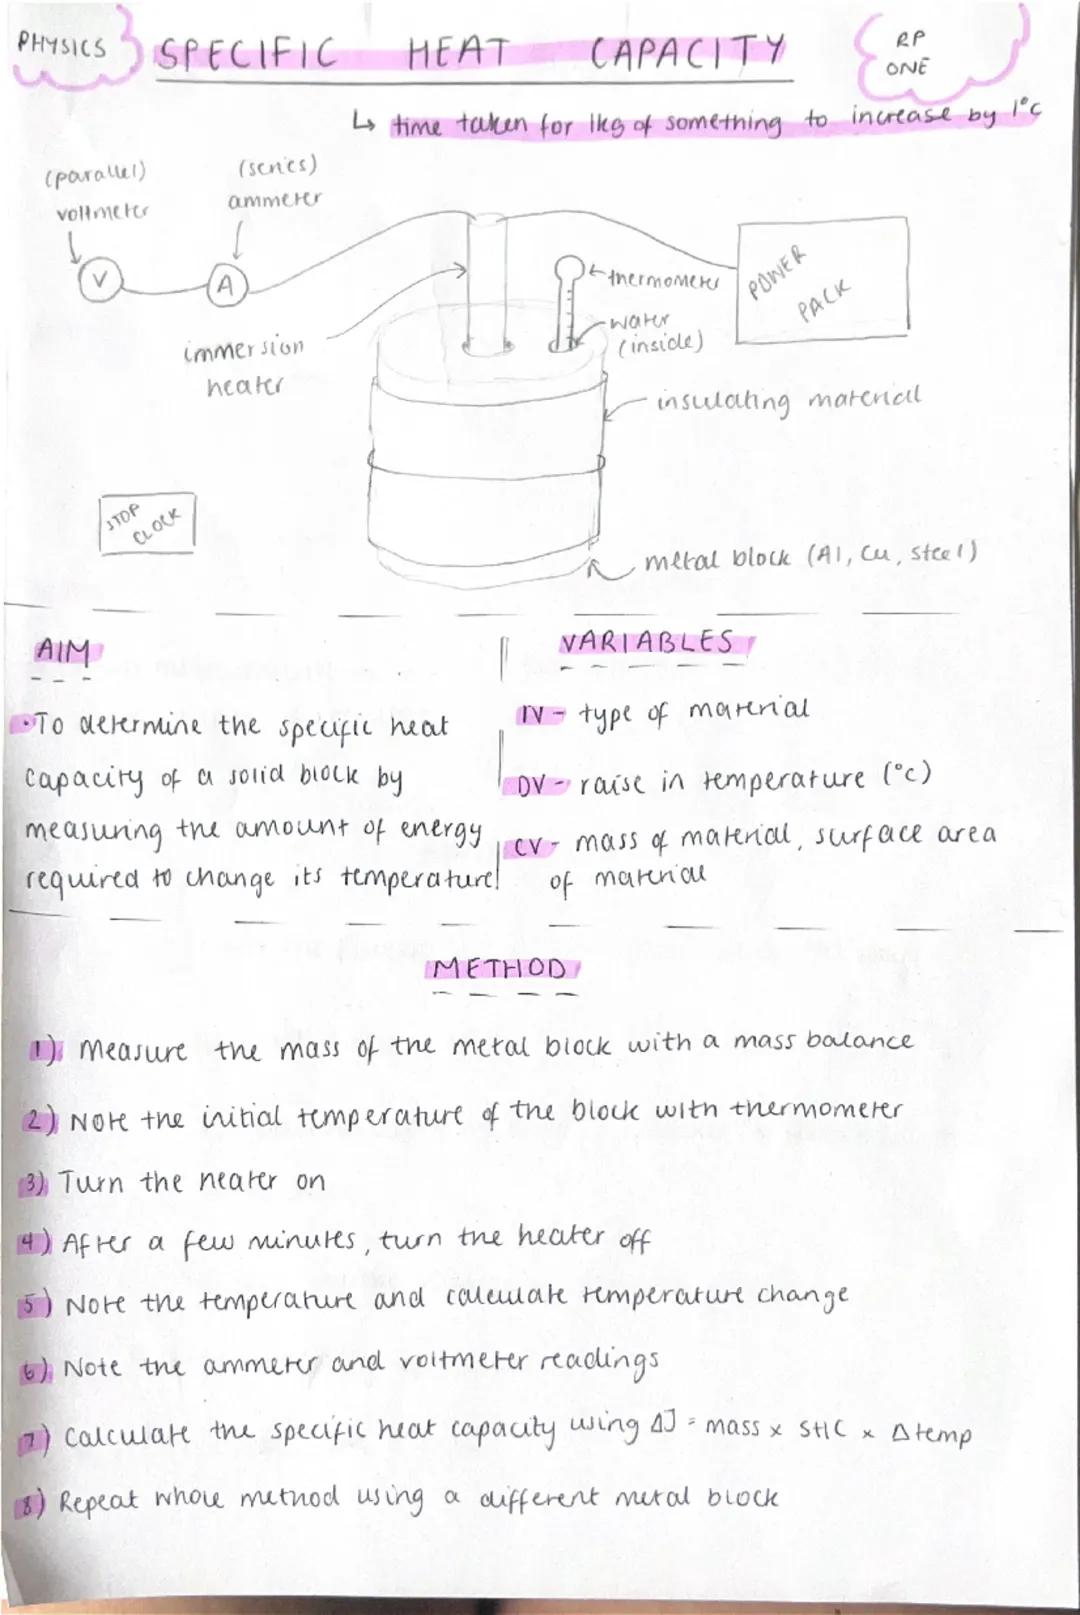 PHYSICS
SPECIFIC HEAT CAPACITY
RP
ONE
↳ time taken for 1kg of something to increase by 1°C
(parallel)
voltmeter
(series)
ammeter
V
A
thermometer
POWER
PACK
water
(inside)
immersion
heater
insulating material
STOP
CLOCK
metal block (Al, Cu, steel)
AIM
• To determine the specific heat
capacity of a solid block by
measuring the amount of energy
required to change its temperature
VARIABLES
IV - type of material
DV - raise in temperature (°C)
CV - mass of material, surface area
of material
METHOD
1) Measure the mass of the metal block with a mass balance
2) Note the initial temperature of the block with thermometer
3) Turn the heater on
4) After a few minutes, turn the heater off
5) Note the temperature and calculate temperature change
6) Note the ammeter and voltmeter readings
7) Calculate the specific heat capacity using ΔJ = mass x SHC x Δtemp
8) Repeat whole method using a different metal block